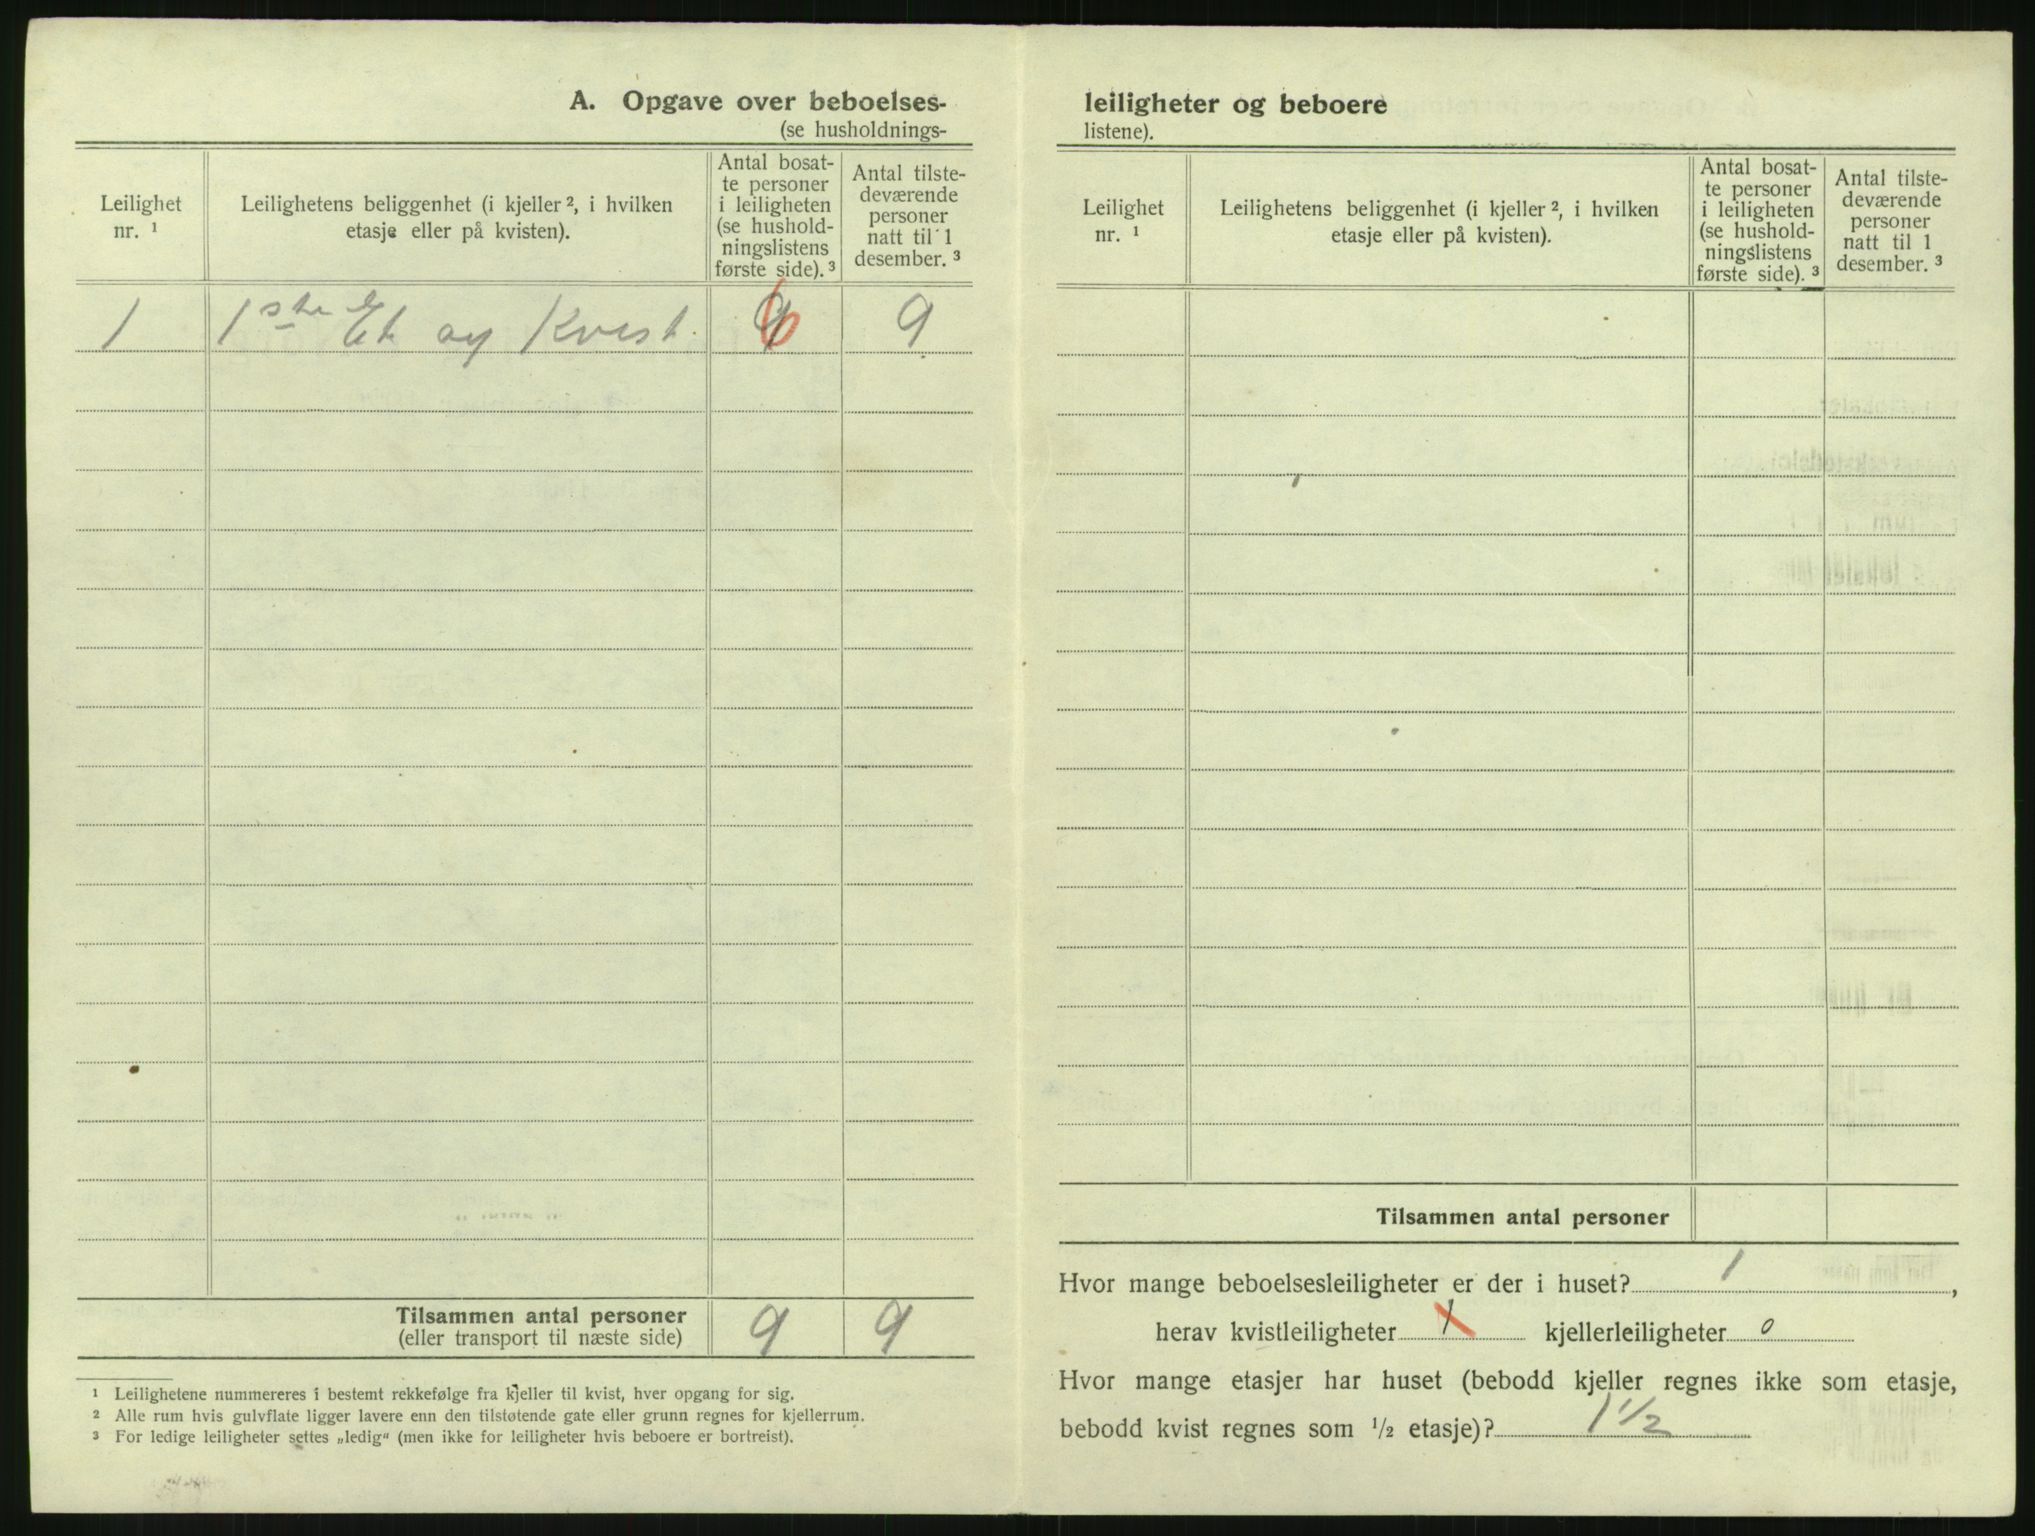 A. Opgave over beboelses-
(se husholdnings-
Leilighet
nr. 1
Leilighetens beliggenhet (i kjeller 2, i hvilken
etasje eller på kvisten).
Antal bosat-
te personer
i leiligheten
(se hushold-
ningslistens
første side). 3
Antal tilste-
deværende
personer
natt til 1
desember. 3
1 1ste Et og Kvist 9 6 9
Tilsammen antal personer 9 9
(eller transport til næste side)
1 Leilighetene nummereres i bestemt rekkefølge fra kjeller til kvist, hver opgang for sig.
2 Alle rum hvis gulvflate ligger lavere enn den tilstøtende gate eller grunn regnes for kjellerrum.
3 For ledige leiligheter settes „ledig“ (men ikke for leiligheter hvis beboere er bortreist).
leiligheter og beboere
listene).
Leilighet
nr. 1
Leilighetens beliggenhet (i kjeller 2, i hvilken
etasje eller på kvisten).
Antal bosat-
te personer
i leiligheten
(se hushold-
ningslistens
første side). 3
Antal tilste-
deværende
personer
natt til 1
desember. 3
Tilsammen antal personer
Hvor mange beboelsesleiligheter er der i huset? 1,
herav kvistleiligheter 1 kjellerleiligheter 0
Hvor mange etasjer har huset (bebodd kjeller regnes ikke som etasje,
bebodd kvist regnes som 1/2 etasje)? 1 1/2